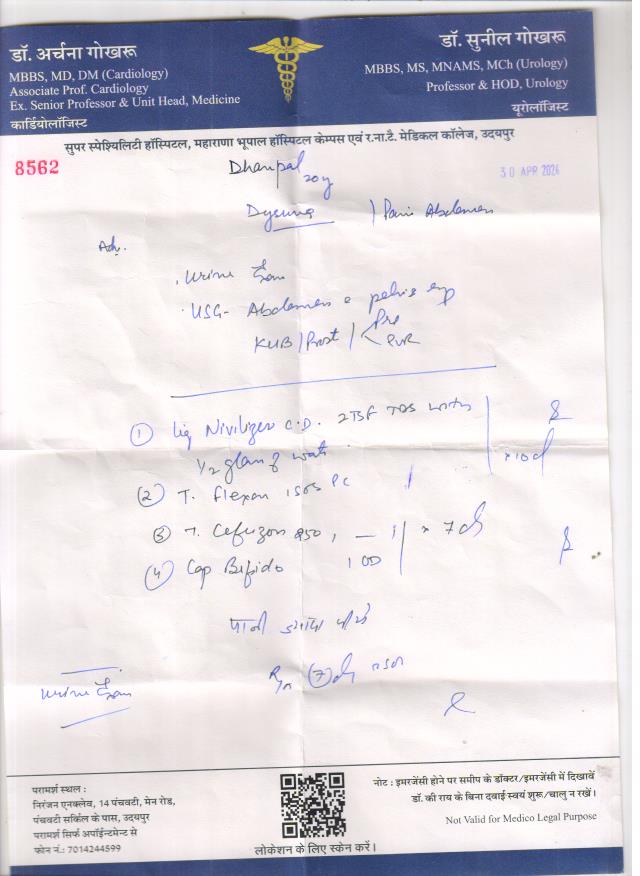 डॉ. अर्चना गोखरू
MBBS, MD, DM (Cardiology)
Associate Prof. Cardiology
Ex. Senior Professor & Unit Head, Medicine
कार्डियोलॉजिस्ट
डॉ. सुनील गोखरू
MBBS, MS, MNAMS, MCh (Urology)
Professor & HOD, Urology
यूरोलॉजिस्ट
सुपर स्पेश्यिलिटी हॉस्पिटल, महाराणा भूपाल हॉस्पिटल केम्पस एवं र.ना.टै. मेडिकल कॉलेज, उदयपुर
8562
30 APR 2024
Dhanpal
20y
Dysuria / Pain Abdomen
Adv.
Urine Exam
USG- Abdomen pelvis
KUB / Prost / Pre
PVR
① Liq 2TSF TDS with
1/2 glass of water
x 10 d
② T. Flexon 1 SOS PC
③ T. 250 1 — 1 x 7 d
④ Cap Bifido 1 OD
पानी ज्यादा पीये
⑦ d
Urine Exam
परामर्श स्थल :
निरंजन एनक्लेव, 14 पंचवटी, मेन रोड,
पंचवटी सर्किल के पास, उदयपुर
परामर्श सिर्फ अपॉईन्टमेन्ट से
फोन नं.: 7014244599
लोकेशन के लिए स्केन करें।
नोट : इमरजेंसी होने पर समीप के डॉक्टर/इमरजेंसी में दिखावें
डॉ. की राय के बिना दवाई स्वयं शुरू/चालु न रखें।
Not Valid for Medico Legal Purpose